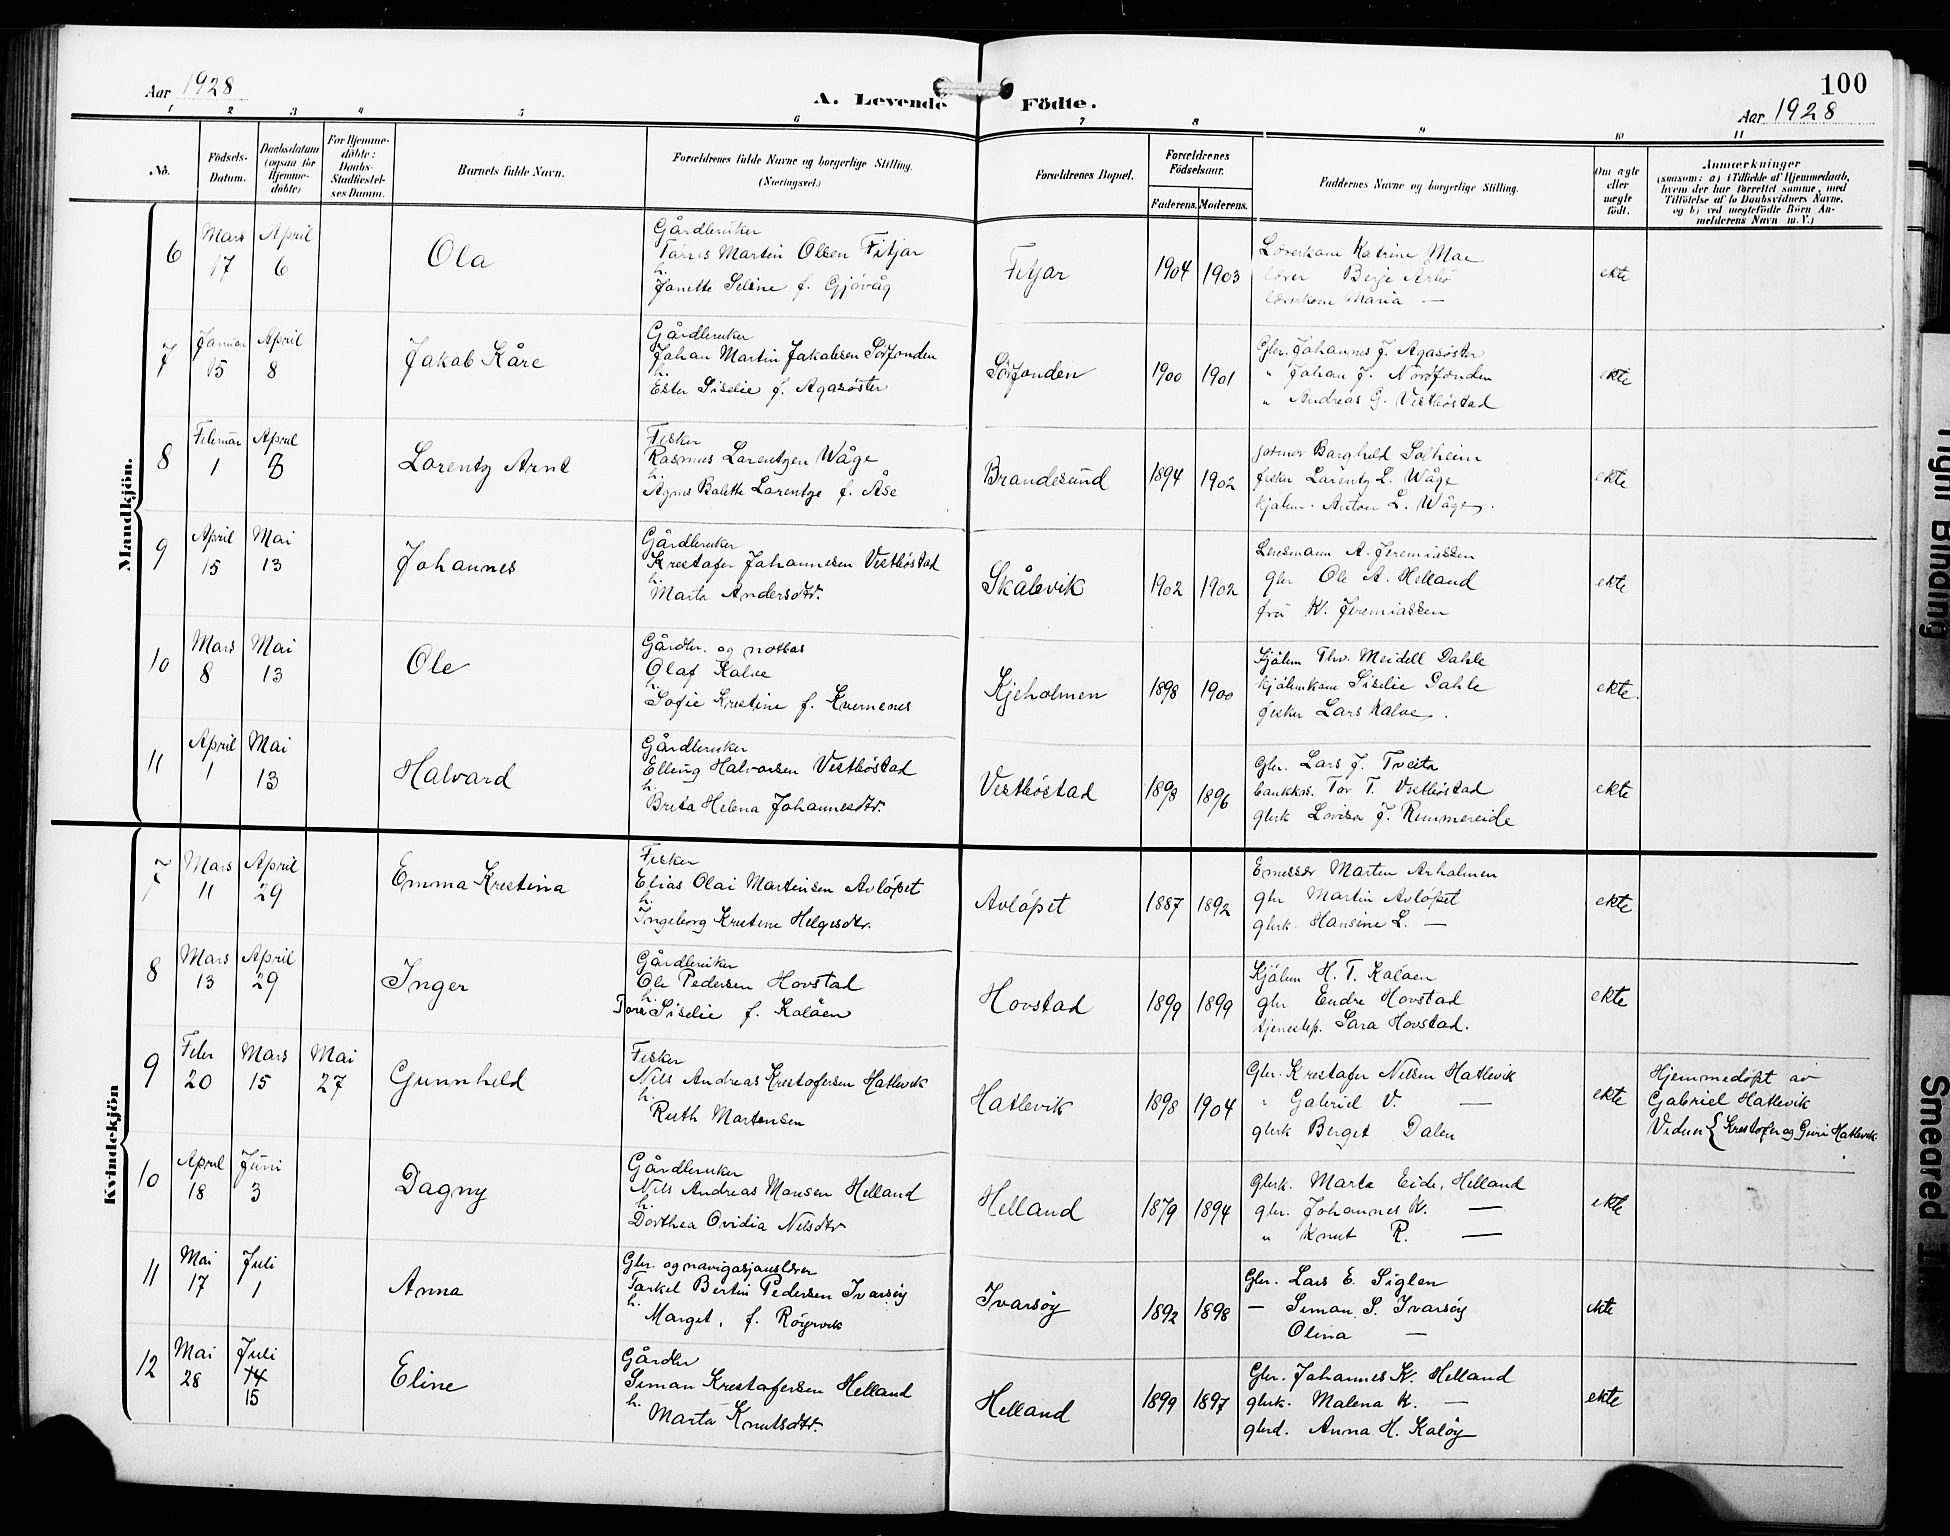 Aar 1928
A. Levende Födte.
100
Aar 1928
1 2 3 4 5 6 7 8 9 10 11
No.
Födsels-Datum.
Daabsdatum (ogsaa for Hjemmedöbte)
For Hjemmedöbte: Daabs-Stadfæstelses Datum.
Barnets fulde Navn.
Forældrenes fulde Navne og borgerlige Stilling. (Næringsvei.)
Forældrenes Bopæl.
Forældrenes Födselsaar.
Faderens. Moderens.
Faddernes Navne og borgerlige Stilling.
Om ægte eller uægte födt.
Anmærkninger
(saasom: a) i Tilfælde af Hjemmedaab,
hvem der har forrettet samme, med
Tilföielse af to Daabsvidners Navne,
og b) ved uægtefödte Börn An-
melderens Navn m. V.)
Mandkjön.
6 Mars 17 April 6 Ola
Gårdbruker
Tørris Martin Olsen Fitjar
h.
Janette Seline f. Gjøvåg
Fitjar 1904 1903
Lærerkone Katrine Moe
lærer Berje Arbø
lærerkone Maria —
ekte
7 Januar 15 April 8 Jakob Kåre
Gårdbruker
Johan Martin Jakobsen Sørfonden
h.
Ester Siselie f. Agasøster
Sørfonden 1900 1901
Gbr. Johannes J. Agasøster
" Johan J. Nordfonden
" Andreas G. Vestbøstad
ekte
8 Februar 1 April 8 Lorentz Arnt
Fisker
Rasmus Lorentzen Wåge
h.
Agnes Balette Lorentze f. Åse
Brandesund 1894 1902
jotmor Borghild Solheim
fisker Lorentz L. Wåge
kjøbm. Anton L. Wåge.
ekte
9 April 15 Mai 13 Johannes
Gårdbruker
Krestofer Johannesen Vestbøstad
h.
Marta Andersdtr.
Skålevik 1902 1902
Lensmann A. Jeremiassen
gbr Ole A. Helland
fru K. Jeremiassen
ekte
10 Mars 8 Mai 13 Ole
Gårdbr. og notbas
Olaf Kalve
h.
Sofie Kristine f. Kvernenes
Kjeholmen 1898 1900
Kjøbm Thv. Meidell Dahle
kjøbmkone Siselie Dahle
fisker Lars Kalve.
ekte.
11 April 1 Mai 13 Halvard
Gårdbruker
Elling Halvorsen Vestbøstad
h.
Breta Helena Johannesdtr.
Vestbøstad 1898 1896
Gbr. Lars J. Tveita
bankkss. Tor T. Vestbøstad
gbrk Lovisa J. Rimmereide
ekte
Kvindekjön
7 Mars 11 April 29 Emma Krestina
Fisker
Elias Olai Martinsen Avløpet
h.
Ingeborg Kristine Helgesdtr.
Avløpet 1887 1892
Emessær Marten Arholmen
gbr Martin Avløpet
gbrk. Hansine L. —
ekte
8 Mars 13 April 29 Inger
Gårdbruker
Ole Pedersen Hovstad
h.
Tora Siselie f. Koløen
Hovstad 1899 1899
Kjøbm H. T. Koløen
gbr Endre Hovstad
tjenestep. Sara Hovstad.
ekte
9 Febr 20 Mars 15 Mai 27 Gunnhild
Fisker
Nils Andreas Krestofersen Hatlevik
h.
Ruth Martensen
Hatlevik 1898 1904
Gbr. Krestofer Nilsen Hatlevik
" Gabriel V. —
gbrk Berget Dalen
ekte
Hjemmedøpt av
Gabriel Hatlevik
Vidner { Krestofer og Guri Hatlevik
10 April 18 Juni 3 Dagny
Gårdbruker
Nils Andreas Monsen Helland
h.
Dorthea Ovidia Nilsdtr
Helland 1879 1894
Gbrk. Marta Eide, Helland
gbr. Johannes K. —
" Knut R. —
ekte
11 Mai 17 Juli 1 Anna
Gbr. og navigasjonslærer
Torkel Bertin Pedersen Ivarsøy
h.
Marget, f. Røyrvik
Ivarsøy 1892 1898
Gbr. Lars E. Siglen
— Simon S. Ivarsøy
Olina —
ekte
12 Mai 28 Juli 14 15 Eline
Gårdbr
Simon Krestofersen Helland
h.
Marta Knutsdtr.
Helland 1899 1897
Gbr. Johannes K. Helland
gbrk. Malena K. —
gbrd. Anna H. Koløy
ekte
Tight Binding
Smeared